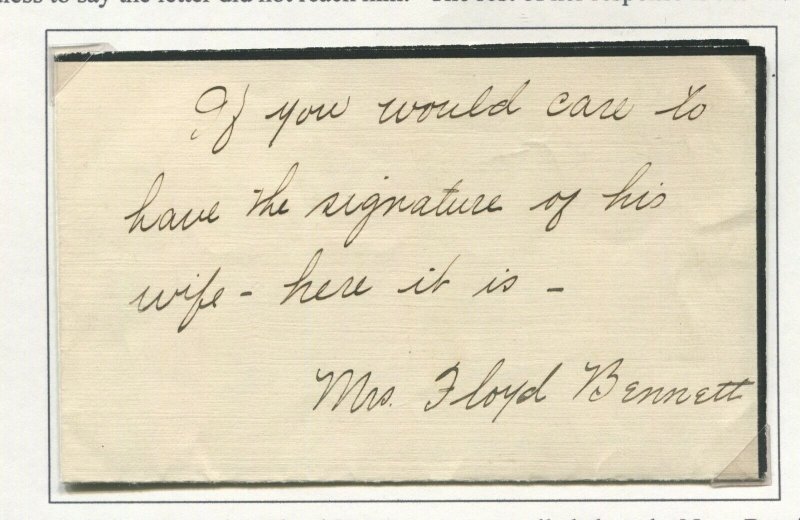 to say the letter did not reach him. The rest of her response
If you would care to
have the signature of his
wife - here it is -
Mrs. Floyd Bennett